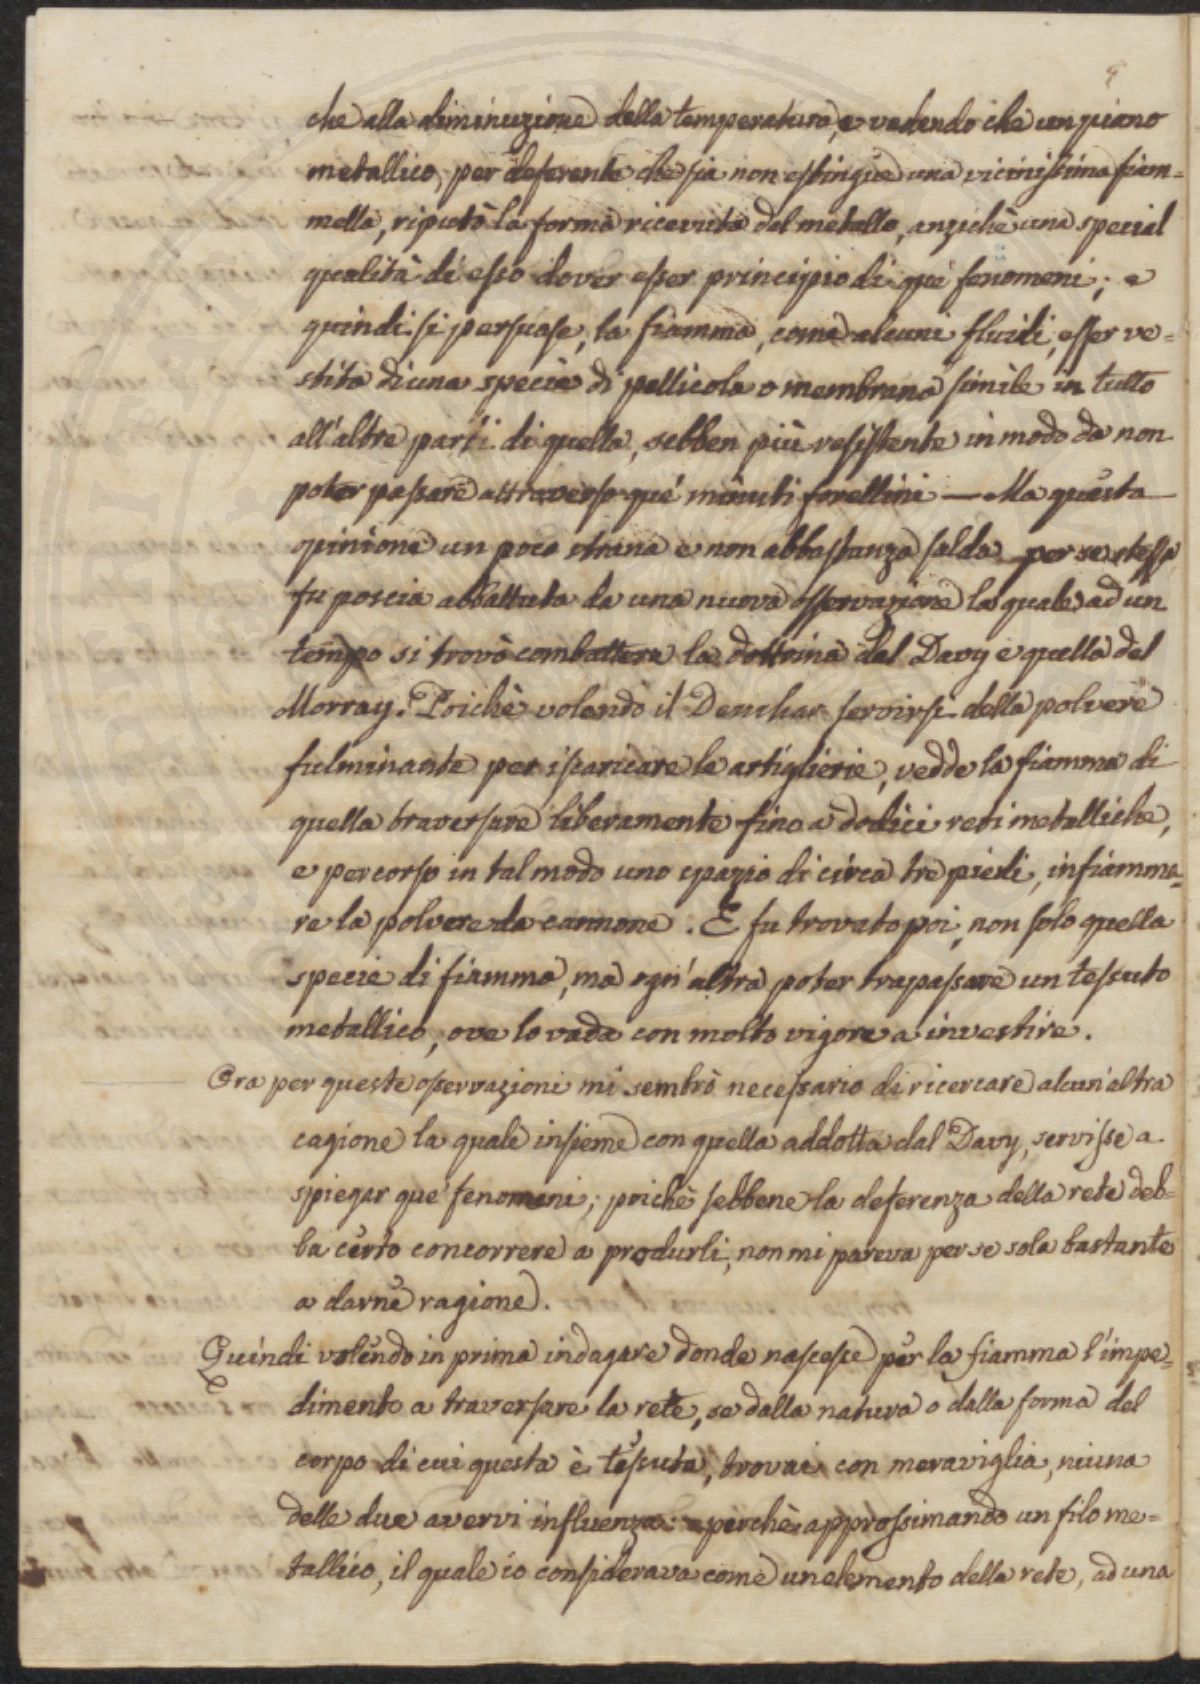 che alla diminuzione della temperatura, e vedendo che un piano
metallico, per deferente che sia non estingue una vicinissima fiam-
mella, riputò la forma ricevuta dal metallo, anzichè una special
qualità di esso dover esser principio di que' fenomeni; e
quindi si persuase, la fiamma, come alcuni fluidi, esser ve=
stita di una specie di pellicola o membrana simile in tutto
all'altre parti di quella, sebben più resistente in modo da non
poter passare attraverso que' minuti forellini — Ma questa
opinione un poco strana e non abbastanza salda per se stessa
fu poscia abbattuta da una nuova osservazione la quale ad un
tempo si trovò combattere la dottrina del Davy e quella del
Morray. Poichè volendo il Deuchar servirsi della polvere
fulminante per iscaricare le artiglierie, vedde la fiamma di
quella traversare liberamente fino a dodici reti metalliche,
e percorso in tal modo uno spazio di circa tre piedi, infiamma=
re la polvere da cannone. E fu trovato poi, non solo quella
specie di fiamma, ma ogn'altra poter trapassare un tessuto
metallico, ove lo vada con molto vigore a investire.
Ora per queste osservazioni mi sembrò necessario di ricercare alcun'altra
cagione la quale insieme con quella addotta dal Davy, servisse a
spiegar que' fenomeni; poichè sebbene la deferenza della rete deb=
ba certo concorrere a produrli, non mi pareva per se sola bastante
a darne ragione.
Quindi volendo in prima indagare donde nascesse per la fiamma l'impe=
dimento a traversare la rete, se dalla natura o dalla forma del
corpo di cui questa è tessuta, trovai con meraviglia, niuna
delle due avervi influenza: perchè approssimando un filo me=
tallico, il quale io considerava come un elemento della rete, ad una